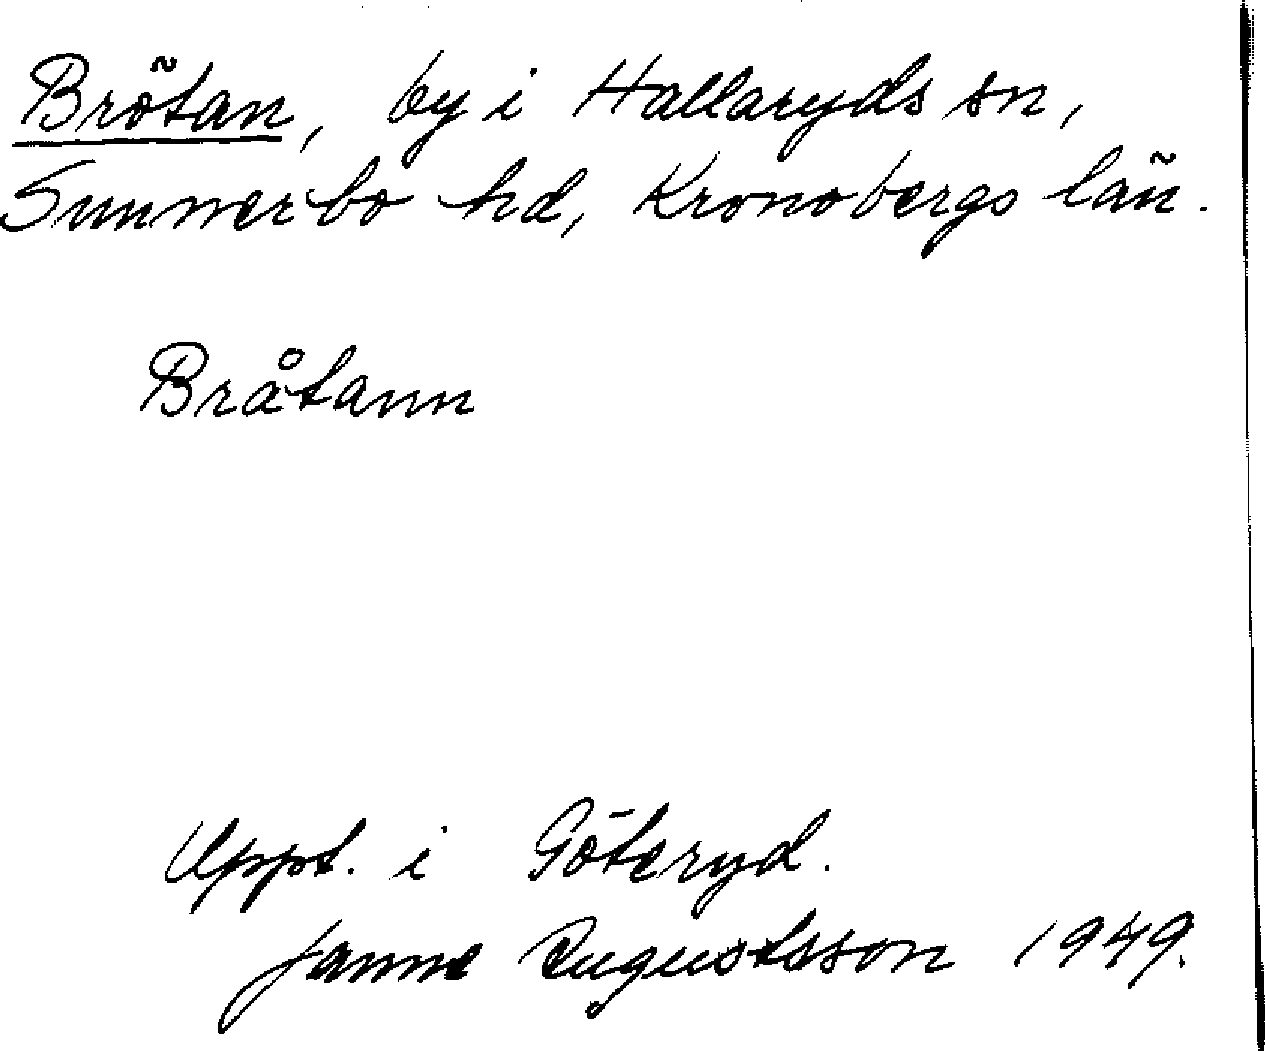 Brötan, by i Hallaryds sn,
Sunnerbo hd, Kronobergs län.
Bråtann
Uppt. i Göteryd.
Janne Augustsson 1949.